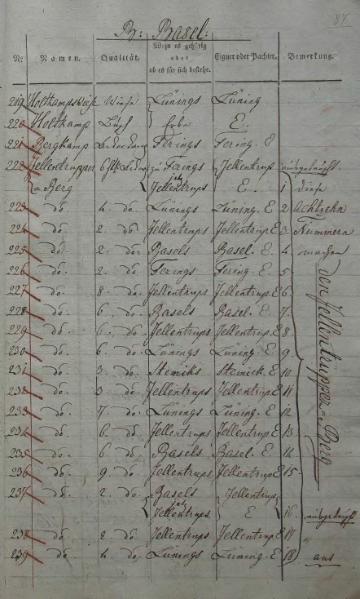 87.
B: Basel.
Nr. Namen. Qualität. Wozu es gehörig oder ob es für sich bestehe. Eigner oder Pächter. Bemerkung.
219 Holtkampswiese Wiese Lünings Lüning
220 Holtkamp E.
221 Bergkamp Ferings Fering. E
222 Jellentruper zu Ferings Jellentrup
Berg Jellentrups E. 1 diese
223 do. 4 do. Lünings Lüning. E 2 Achtzehn
224 do. 2 do. Jellentrups Jellentrup E 3 Nummern
225 do. 2 do. Basels Basel. E. 4 machen
226 do. 2 do. Ferings Fering. E 5
227 do. 8 do. Jellentrups Jellentrup. E 6
228 do. 6 do. Basels Basel. E 7
229 do. 6. do. Jellentrups Jellentrup. E 8
230 do. 6. do. Lünings Lüning E 9
231 do. 3 do. Steinick. E 10
232 do. 3 do. Jellentrups Jellentrup. E 11
233 do. 7 do. Lünings Lüning. E 12
234 do. 6 do. Jellentrups Jellentrup. E 13
235 do. 6 do. Basels Basel. E 14
236 do. 9. do. Jellentrups Jellentrup. E 15
237 do. 2 do. Basels Jellentrup.
Jellentrups E 16
238 do. 8 do. Jellentrups Jellentrup E 17
239 do. 4 do. Lünings Lüning. E 18 aus
Berg